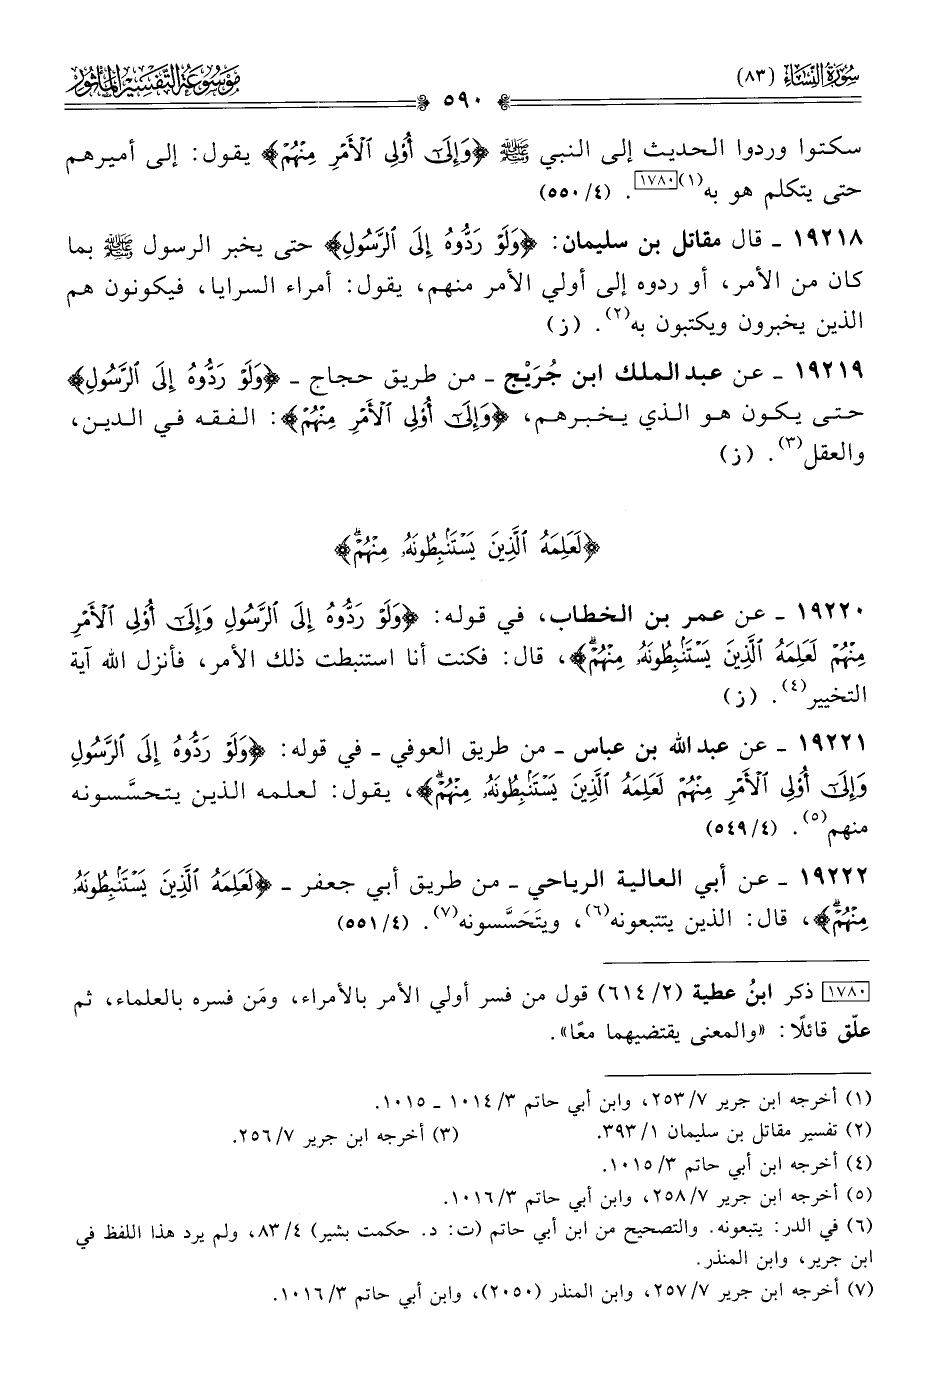 سُورَةُ النِّسَاءِ (٨٣)
موسوعة التفسير المأثور
٥٩٠
سكتوا وردوا الحديث إلى النبي ﷺ ﴿وَإِلَىٰٓ أُوْلِي ٱلۡأَمۡرِ مِنۡهُمۡ﴾ يقول: إلى أميرهم
حتى يتكلم هو به(١)[١٧٨٠]. (٤/ ٥٥٠)
١٩٢١٨ ـ قال مقاتل بن سليمان: ﴿وَلَوۡ رَدُّوهُ إِلَى ٱلرَّسُولِ﴾ حتى يخبر الرسول ﷺ بما
كان من الأمر، أو ردوه إلى أولي الأمر منهم، يقول: أمراء السرايا، فيكونون هم
الذين يخبرون ويكتبون به(٢). (ز)
١٩٢١٩ ـ عن عبد الملك ابن جُرَيْج ـ من طريق حجاج ـ ﴿وَلَوۡ رَدُّوهُ إِلَى ٱلرَّسُولِ﴾
حتى يكون هو الذي يخبرهم، ﴿وَإِلَىٰٓ أُوْلِي ٱلۡأَمۡرِ مِنۡهُمۡ﴾: الفقه في الدين،
والعقل(٣). (ز)
﴿لَعَلِمَهُ ٱلَّذِينَ يَسۡتَنۢبِطُونَهُۥ مِنۡهُمۡۗ﴾
١٩٢٢٠ ـ عن عمر بن الخطاب، في قوله: ﴿وَلَوۡ رَدُّوهُ إِلَى ٱلرَّسُولِ وَإِلَىٰٓ أُوْلِي ٱلۡأَمۡرِ
مِنۡهُمۡ لَعَلِمَهُ ٱلَّذِينَ يَسۡتَنۢبِطُونَهُۥ مِنۡهُمۡۗ﴾، قال: فكنت أنا استنبطت ذلك الأمر، فأنزل الله آية
التخيير(٤). (ز)
١٩٢٢١ ـ عن عبد الله بن عباس ـ من طريق العوفي ـ في قوله: ﴿وَلَوۡ رَدُّوهُ إِلَى ٱلرَّسُولِ
وَإِلَىٰٓ أُوْلِي ٱلۡأَمۡرِ مِنۡهُمۡ لَعَلِمَهُ ٱلَّذِينَ يَسۡتَنۢبِطُونَهُۥ مِنۡهُمۡۗ﴾، يقول: لعلمه الذين يتحسَّسونه
منهم(٥). (٤/ ٥٤٩)
١٩٢٢٢ ـ عن أبي العالية الرياحي ـ من طريق أبي جعفر ـ ﴿لَعَلِمَهُ ٱلَّذِينَ يَسۡتَنۢبِطُونَهُۥ
مِنۡهُمۡۗ﴾، قال: الذين يتتبعونه(٦)، ويتَحَسَّسونه(٧). (٤/ ٥٥١)
[١٧٨٠] ذكر ابنُ عطية (٢/ ٦١٤) قول من فسر أولي الأمر بالأمراء، ومَن فسره بالعلماء، ثم
علّق قائلًا: «والمعنى يقتضيهما معًا».
(١) أخرجه ابن جرير ٧/ ٢٥٣، وابن أبي حاتم ٣/ ١٠١٤ ـ ١٠١٥.
(٢) تفسير مقاتل بن سليمان ١/ ٣٩٣. (٣) أخرجه ابن جرير ٧/ ٢٥٦.
(٤) أخرجه ابن أبي حاتم ٣/ ١٠١٥.
(٥) أخرجه ابن جرير ٧/ ٢٥٨، وابن أبي حاتم ٣/ ١٠١٦.
(٦) في الدر: يتبعونه. والتصحيح من ابن أبي حاتم (ت: د. حكمت بشير) ٤/ ٨٣، ولم يرد هذا اللفظ في
ابن جرير، وابن المنذر.
(٧) أخرجه ابن جرير ٧/ ٢٥٧، وابن المنذر (٢٠٥٠)، وابن أبي حاتم ٣/ ١٠١٦.